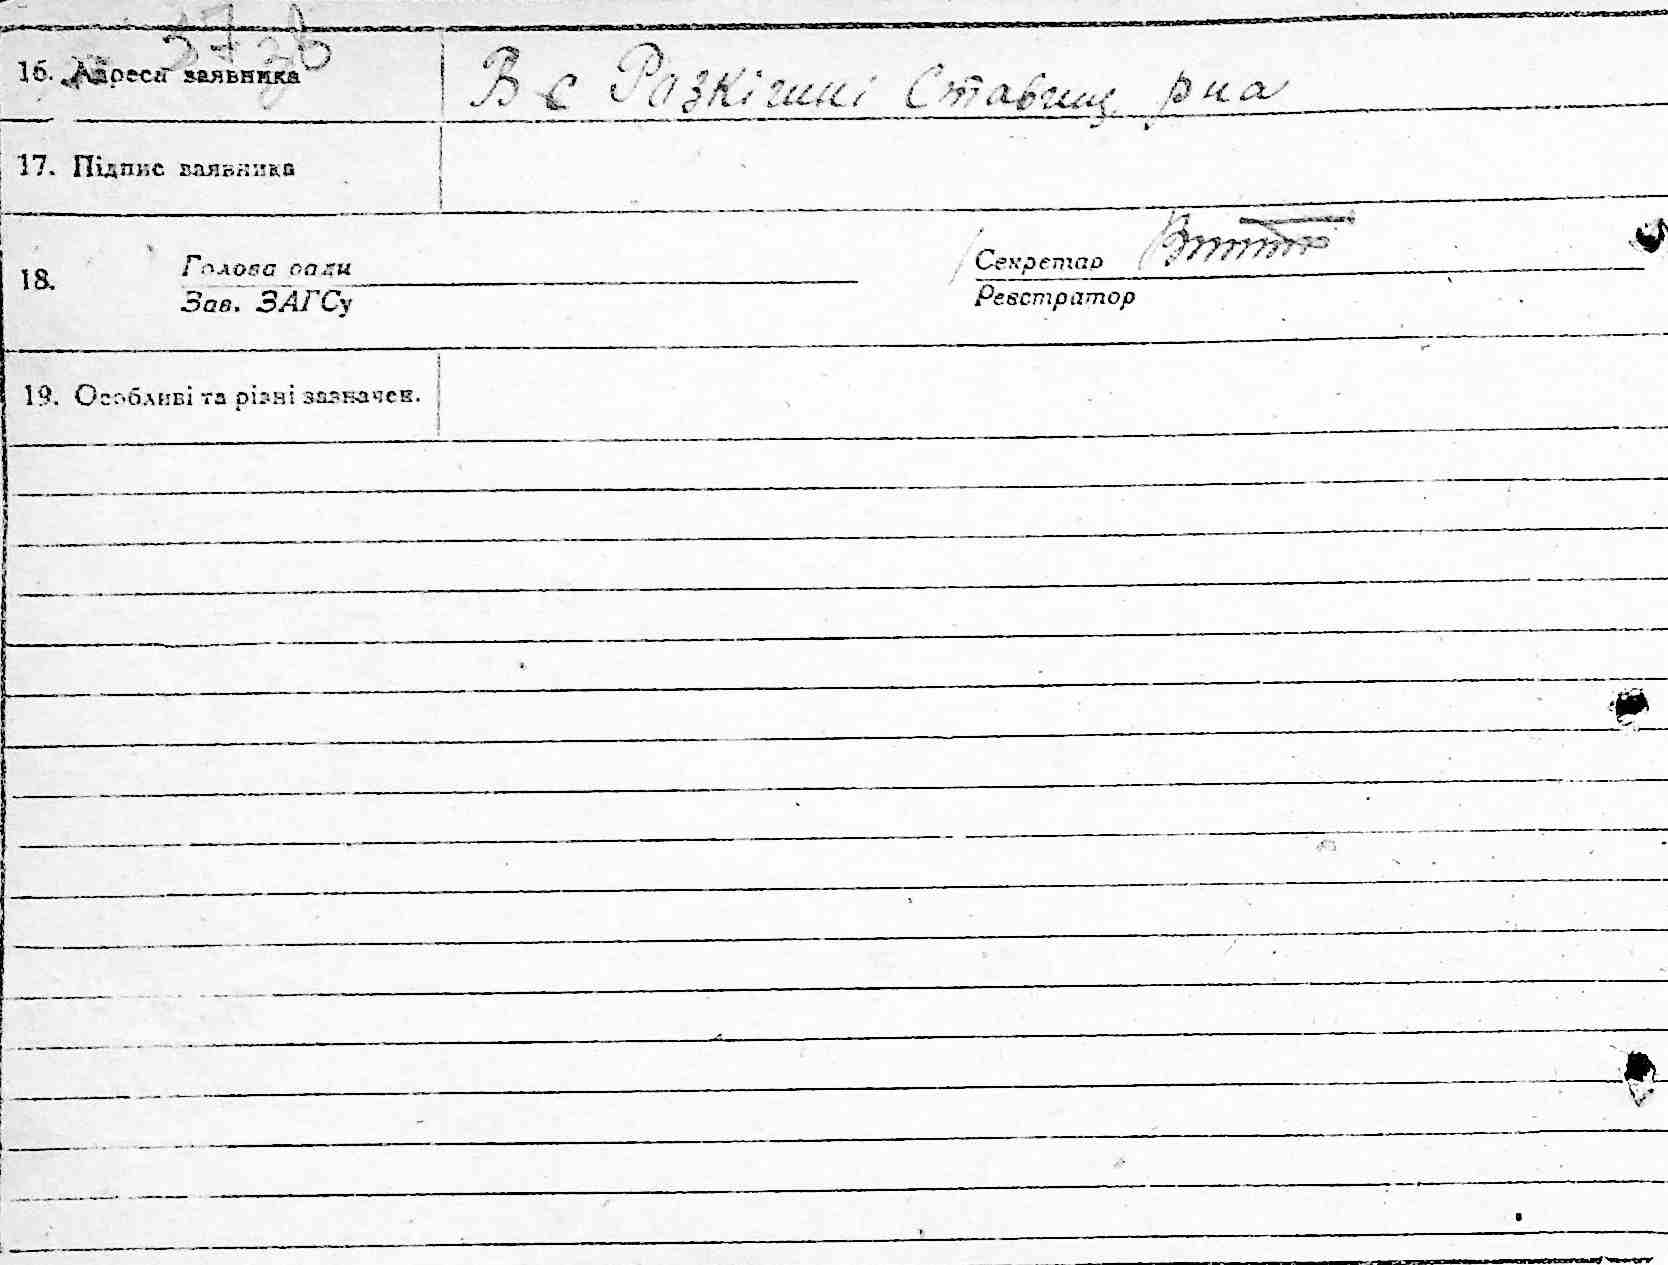 37 зв
16. Адреса заявника В с Разкішні Ставищ. рна
17. Підпис заявника
18. Голова ради Секретар
Зав. ЗАГСу Реєстратор
19. Особливі та різні зазначек.